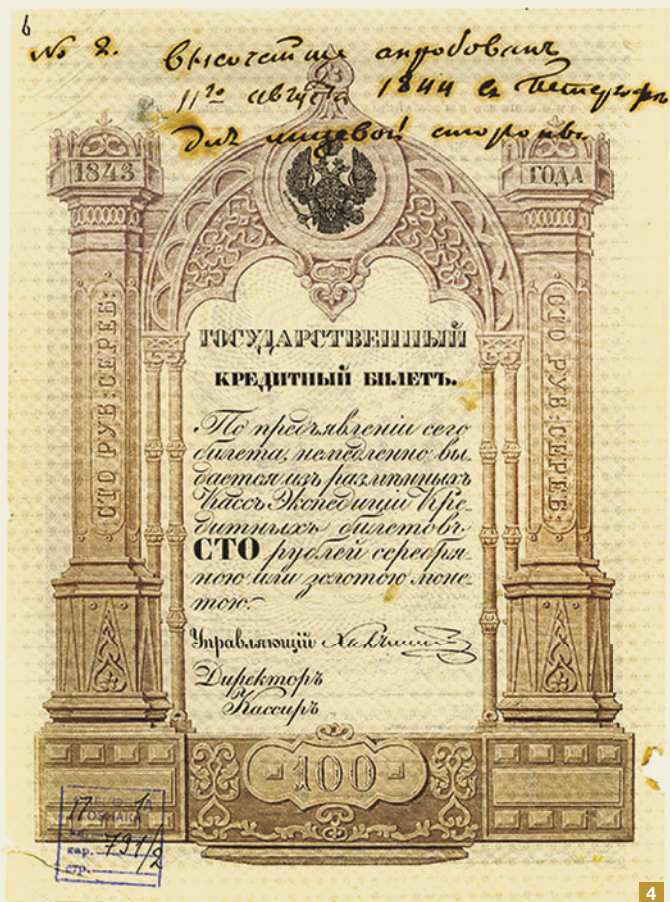 6
№ 2. Высочайше апробованъ
11го августа 1844 въ Петергофѣ
для лицевой стороны
1843 ГОДА
СТО РУБ: СЕРЕБ:
ГОСУДАРСТВЕННЫЙ
КРЕДИТНЫЙ БИЛЕТЪ.
По предъявленіи сего
билета, немедленно вы-
дается изъ размѣнныхъ
Кассъ Экспедиціи Кре-
дитныхъ билетовъ
СТО рублей серебря-
ною или золотою моне-
тою.
СТО РУБ: СЕРЕБ:
Управляющій
Директоръ
Кассиръ
100
кар. 731/2
стр.
4